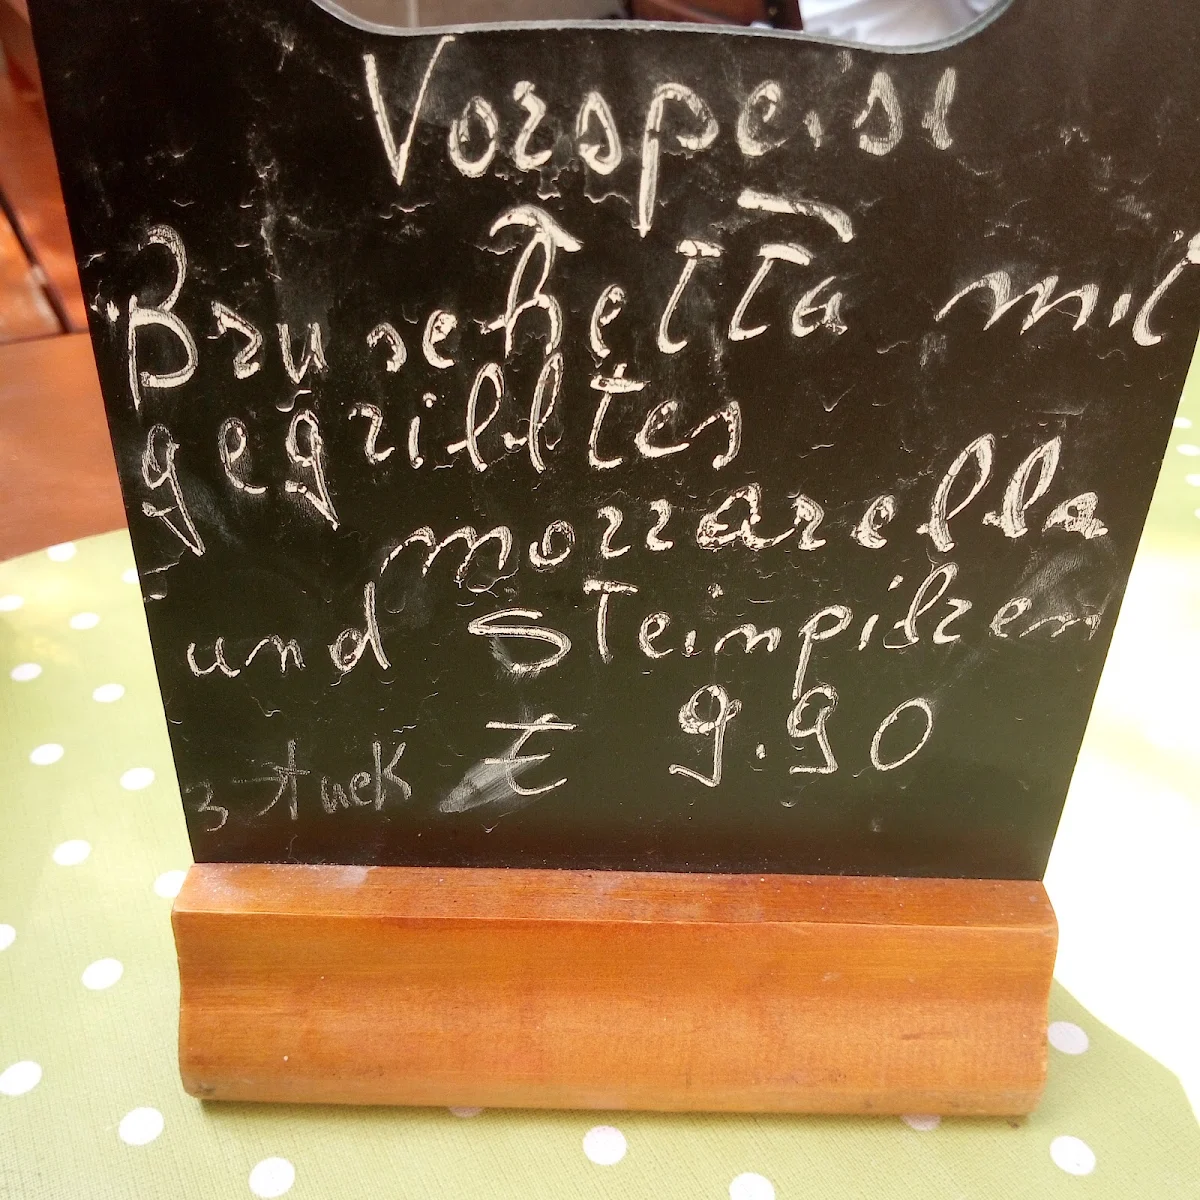 Vorspeise
Bruschetta mit
gegrilltes
mozzarella
und Steinpilzen
3 stuck € 9.90